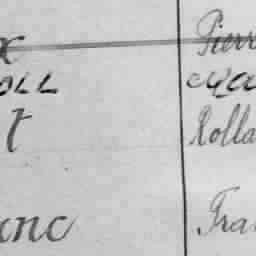 x Pierr
OLL
t Rolla
anc Fra